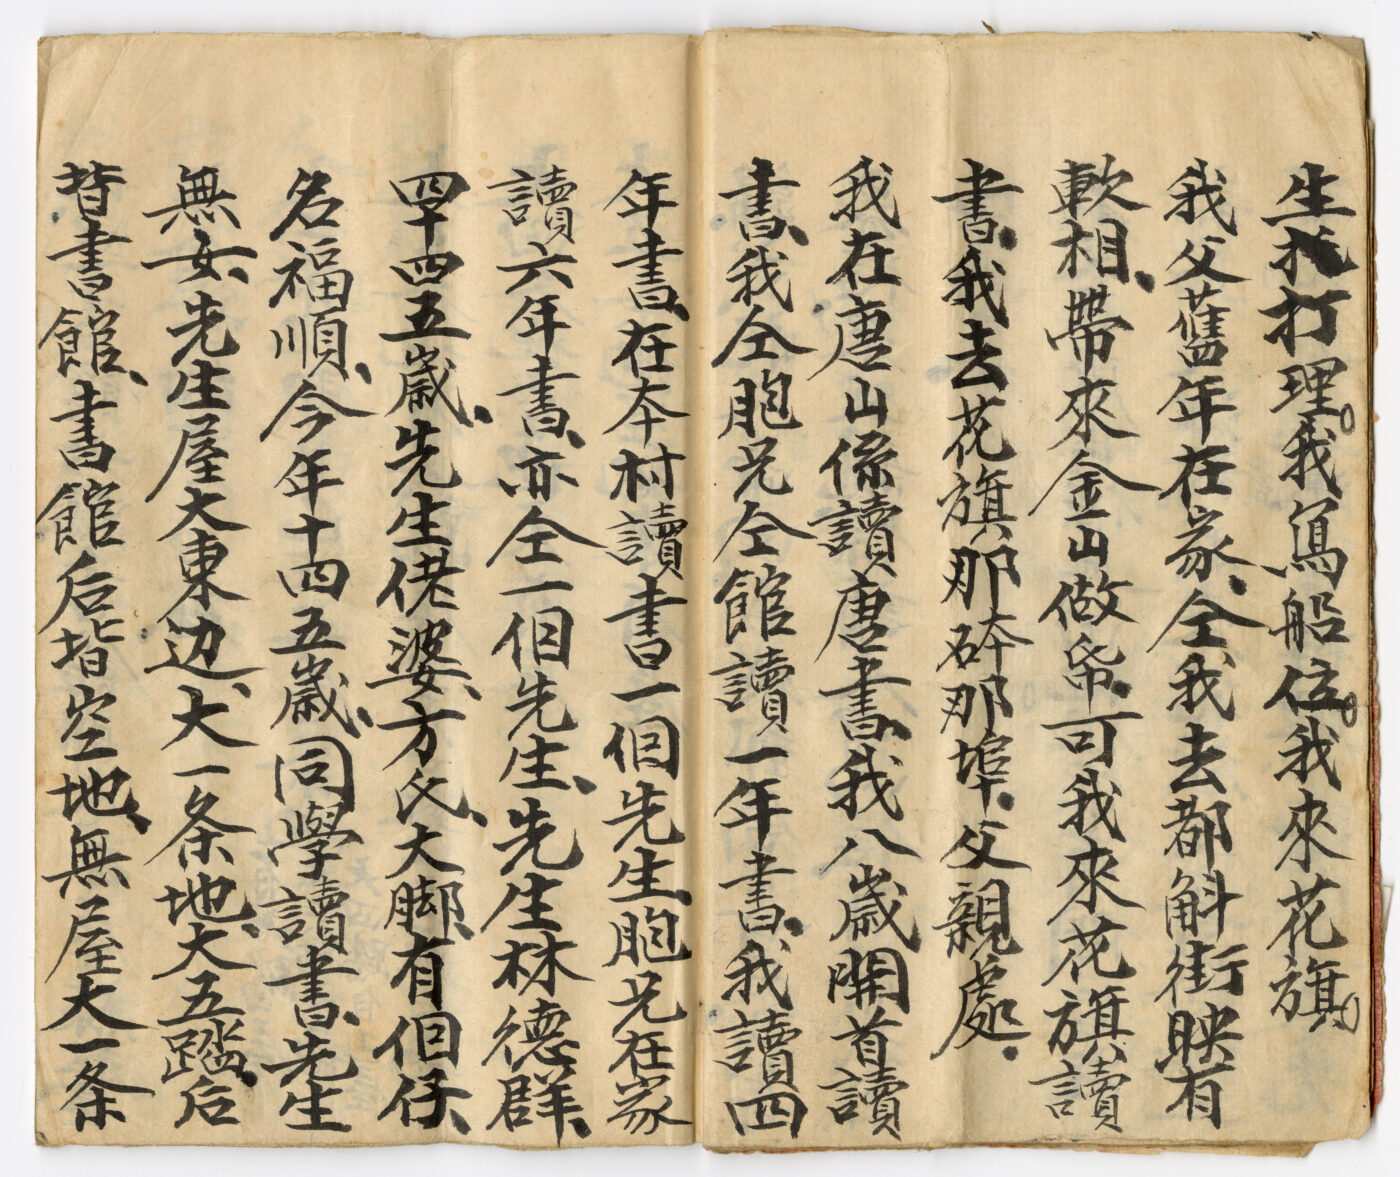 生打理。我寫船位。我來花旗。
我父舊年在家、仝我去都斛街映有
軟相、帶來金山做帋、可我來花旗讀
書、我去花旗那砵那埠、父親處、
我在唐山係讀唐書、我八歲開首讀
書、我仝胞兄仝館讀一年書、我讀四
年書、在本村讀書一個先生、胞兄在家
讀六年書、亦仝一個先生、先生林德群、
四十四五歲、先生佬婆、方氏、大脚、有個仔、
名福順、今年十四五歲、同學讀書、先生
無女、先生屋大東边、大一条地、大五踏、后
背書館、書館后背空地、無屋、大一条